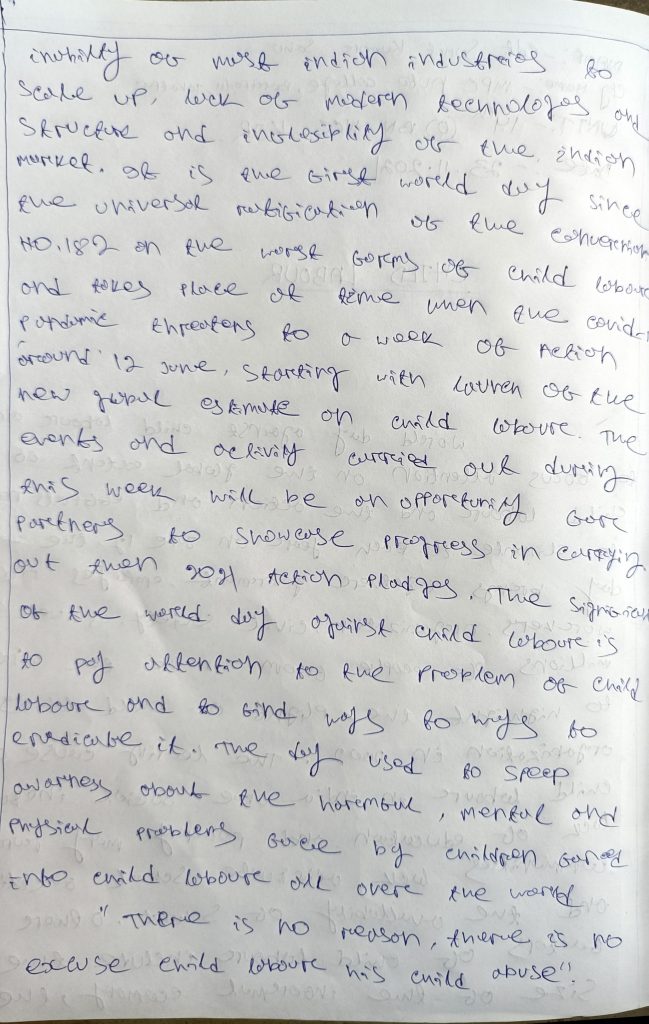 inability of most indian industreies to
scale up, lack of modern technologes and
structure and inflesiblity of the indian
market. It is the first world day since
the universal ratification of the convention
NO.182 on the worst forms of child laboure
and takes place at time when the covid-
pandamic threatens to a week of Action
around 12 June, starting with launch of the
new global estimate on child laboure. The
events and activity carried out during
this week will be an opportunity fore
partners to showcase progress in carrying
out their 2021 Action pladges. The significa
of the world day against child laboure is
to pay attention to the problem of child
laboure and to find ways to ways to
eradicate it. The day used to
awarness about the haremful, mental and
physical problems face by children forced
into child laboure all overe the world
"There is no reason, there is no
excuse child laboure his child abuse".